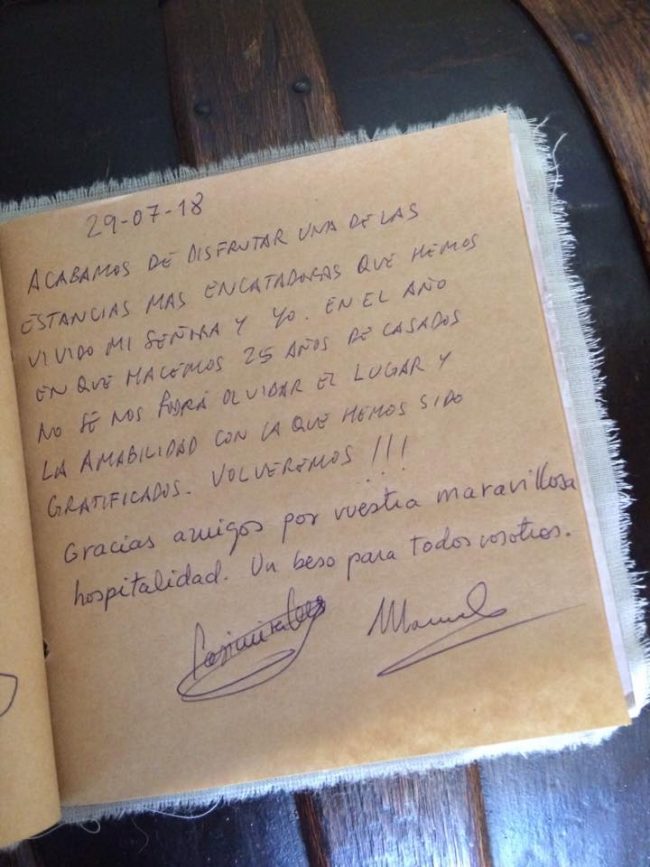 29-07-18
ACABAMOS DE DISFRUTAR UNA DE LAS
ESTANCIAS MAS ENCATADORAS QUE HEMOS
VIVIDO MI SEÑORA Y YO. EN EL AÑO
EN QUE HACEMOS 25 AÑOS DE CASADOS
NO SE NOS PODRÁ OLVIDAR EL LUGAR Y
LA AMABILIDAD CON LA QUE HEMOS SIDO
GRATIFICADOS. VOLVEREMOS!!!
Gracias amigos por vuestra maravillosa
hospitalidad. Un beso para todos vosotros.
Manuel